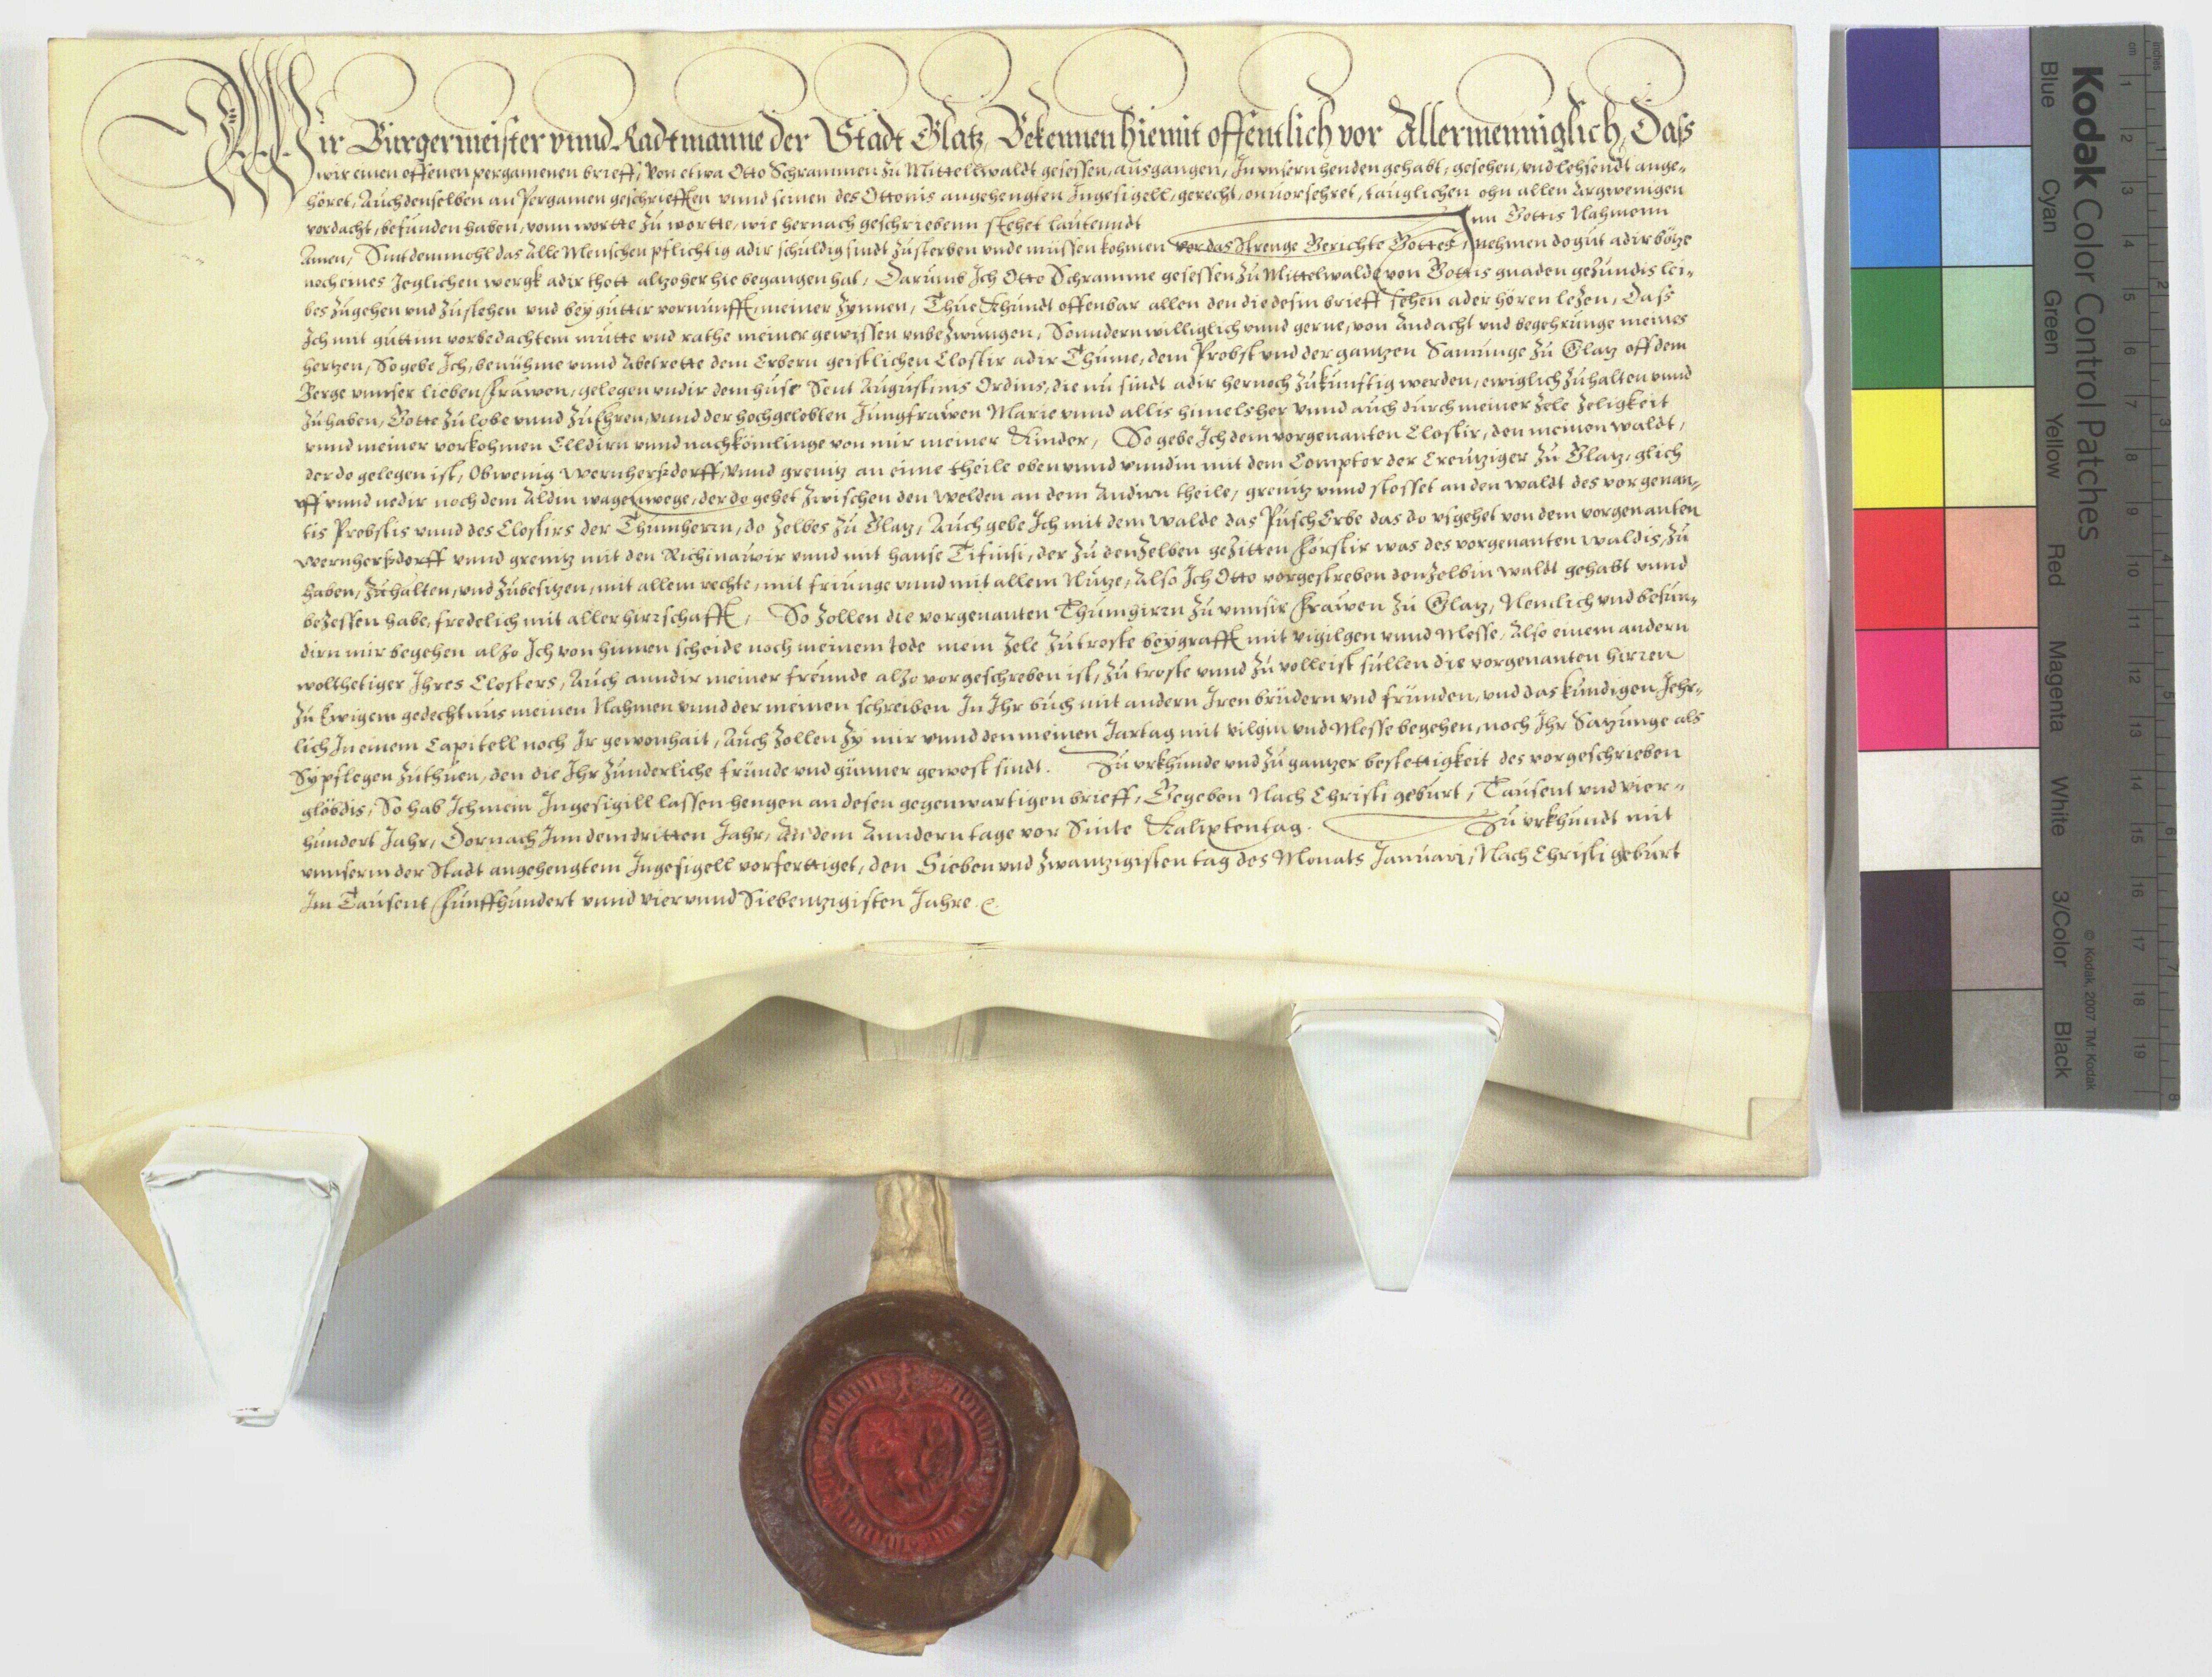 Wir Bürgermeister vnnd Radtmanne der Stadt Glatz, Bekennen hiemit offentlich vor Allermenniglich, Dass
wir einen offenen pergamenen brieff, Von etwa Otto Schrammen zu Mittellwaldt gesessen, ausgangen, In vnsern henden gehabt, gesehen, vnd lehsendt ange-
höret, Auch denselben an Pergamen geschriefften vnnd seinen des Ottonis angehengten Ingesigell, gerecht, onuorsehret, tauglichen ohn allen Argwenigen
vordacht, befunden haben, vonn wortte zu wortte, wie hernach geschriebenn stehet lautenndt Inn Gottis Nahmenn
Amen, Sintdemmohl das Alle Menschen pflichtig adir schuldig sindt zusterben vnde müssen kohmen vor das strenge Gerichte Gottes, nehmen do gut adir böze
noch eines Jeglichen wergk adir thott altzoher hie begangen hat, Darumb Ich Otto Schramme gesessen zu Mittelwalde von Gottis gnaden gesundis lei-
bes zugehen vnd zustehen vnd bey guttir vornunfft, meiner zynnen, Thue Khundt offenbar allen den die desin brieff sehen ader hören lezen, Dass
Ich mit guttim vorbedachtem mutte vnd rathe meiner gewissen vnbezwungen, Sonndern williglich vnnd gerne, von Andacht vnd begehrunge meines
hertzen, So gebe Ich, benühme vnnd Abetrette dem Erbern geistlichen Clostir adir Thume, dem Probst vnd der gantzen Samunge zu Glatz off dem
Berge vnnser lieben Frawen, gelegen vndir dem huse Sent Augustinis Ordins, die nu sindt adir hernoch zukünftig werden, ewiglich zuhalten vnnd
zuhaben, Gotte zu lobe vnnd zu Ehren, vnnd der hochgelobten Jungfrawen Marie vnnd allis himelsher vnnd auch durch meiner zele zeligkeit
vnnd meiner vorkohmen Elldirn vnnd nachkömlinge von mir meiner Kinder, So gebe Ich dem vorgenanten Clostir, den meinen waldt,
der do gelegen ist, Obwenig wernherßdorff, vnnd grenitz an eime theile eben vnnd vnndin mit dem Comptor der Creutziger zu Glatz, glich
vff vnnd nedir noch dem Aldin wagenwege, der do gehet zwischen den welden an dem Andirn theile, grenitz vnnd stosset an den waldt des vorgenan-
tis Probstis vnnd des Clostirs der Thumherrn, do zelbes zu Glatz, Auch gebe Ich mit dem walde das Pusch Erbe das do vsgehet von dem vorgenanten
wernherßdorff vnnd grenitz mit den Richinauwir vnnd mit hanse Tifinsi, der zu denzelben gezitten Förstir was des vorgenanten waldis, zu
haben, zuhalten, vnd zubesitzen, mit allem rechte, mit friunge vnnd mit allem Nutze, Also Ich Otto vorgeschreben denzelbin waldt gehabt vnnd
bezessen habe, fredelich mit aller hirrschafft, So zollen die vorgenanten Thumhirrn zu vnnsir Frawen zu Glatz, Nemlich vnd besun-
dirn mir begehen alzo Ich von hinnen scheide noch meinem tode mein zele zutroste beygrafft mit vigilgen vnnd Messe, Also einem andern
wolthetiger Ihres Closters, Auch anndir meiner freunde alzo vorgeschreben ist, zu troste vnnd zu volleist süllen die vorgenanten hirren
zu Ewigem gedechtnus meinen Nahmen vnnd der meinen schreiben In Ihr buch mit andern Iren brüdern vnd fründen, vnd das kundigen Jehr-
lich In einem Capitell noch Ir gewonhait, Auch zollen zy mir vnnd den meinen Jartag mit vilgin vnd Messe begehen, noch Ihr Satzunge als
Sy pflegen zuthuen, den die Ihr zunderliche fründe vnd günner gewest sindt. Zu vrkhunde vnd zu gantzer bestettigkeit des vorgeschrieben
glöbdis, So hab Ich mein Ingesigill lassen hengen an desen gegenwartigen brieff, Gegeben Nach Christi geburt, Tausent vnd vier-
hundert Jahr, Dornach Inn dem dritten Jahr, An dem Anndern tage vor Sinte Kalixtentag. Zu vrkhundt mit
vnnserm der Stadt angehengtem Ingesigell vorfertiget, den Sieben vnd zwantzigisten tag des Monats Januari, Nach Christi geburt
Im Tausent Fünffhundert vnnd vier vnnd Siebentzigisten Jahre.
Kodak Color Control Patches
© Kodak, 2007 TM: Kodak
Blue Cyan Green Yellow Red Magenta White 3/Color Black
cm 1 2 3 4 5 6 7 8 9 10 11 12 13 14 15 16 17 18 19
inches 1 2 3 4 5 6 7 8